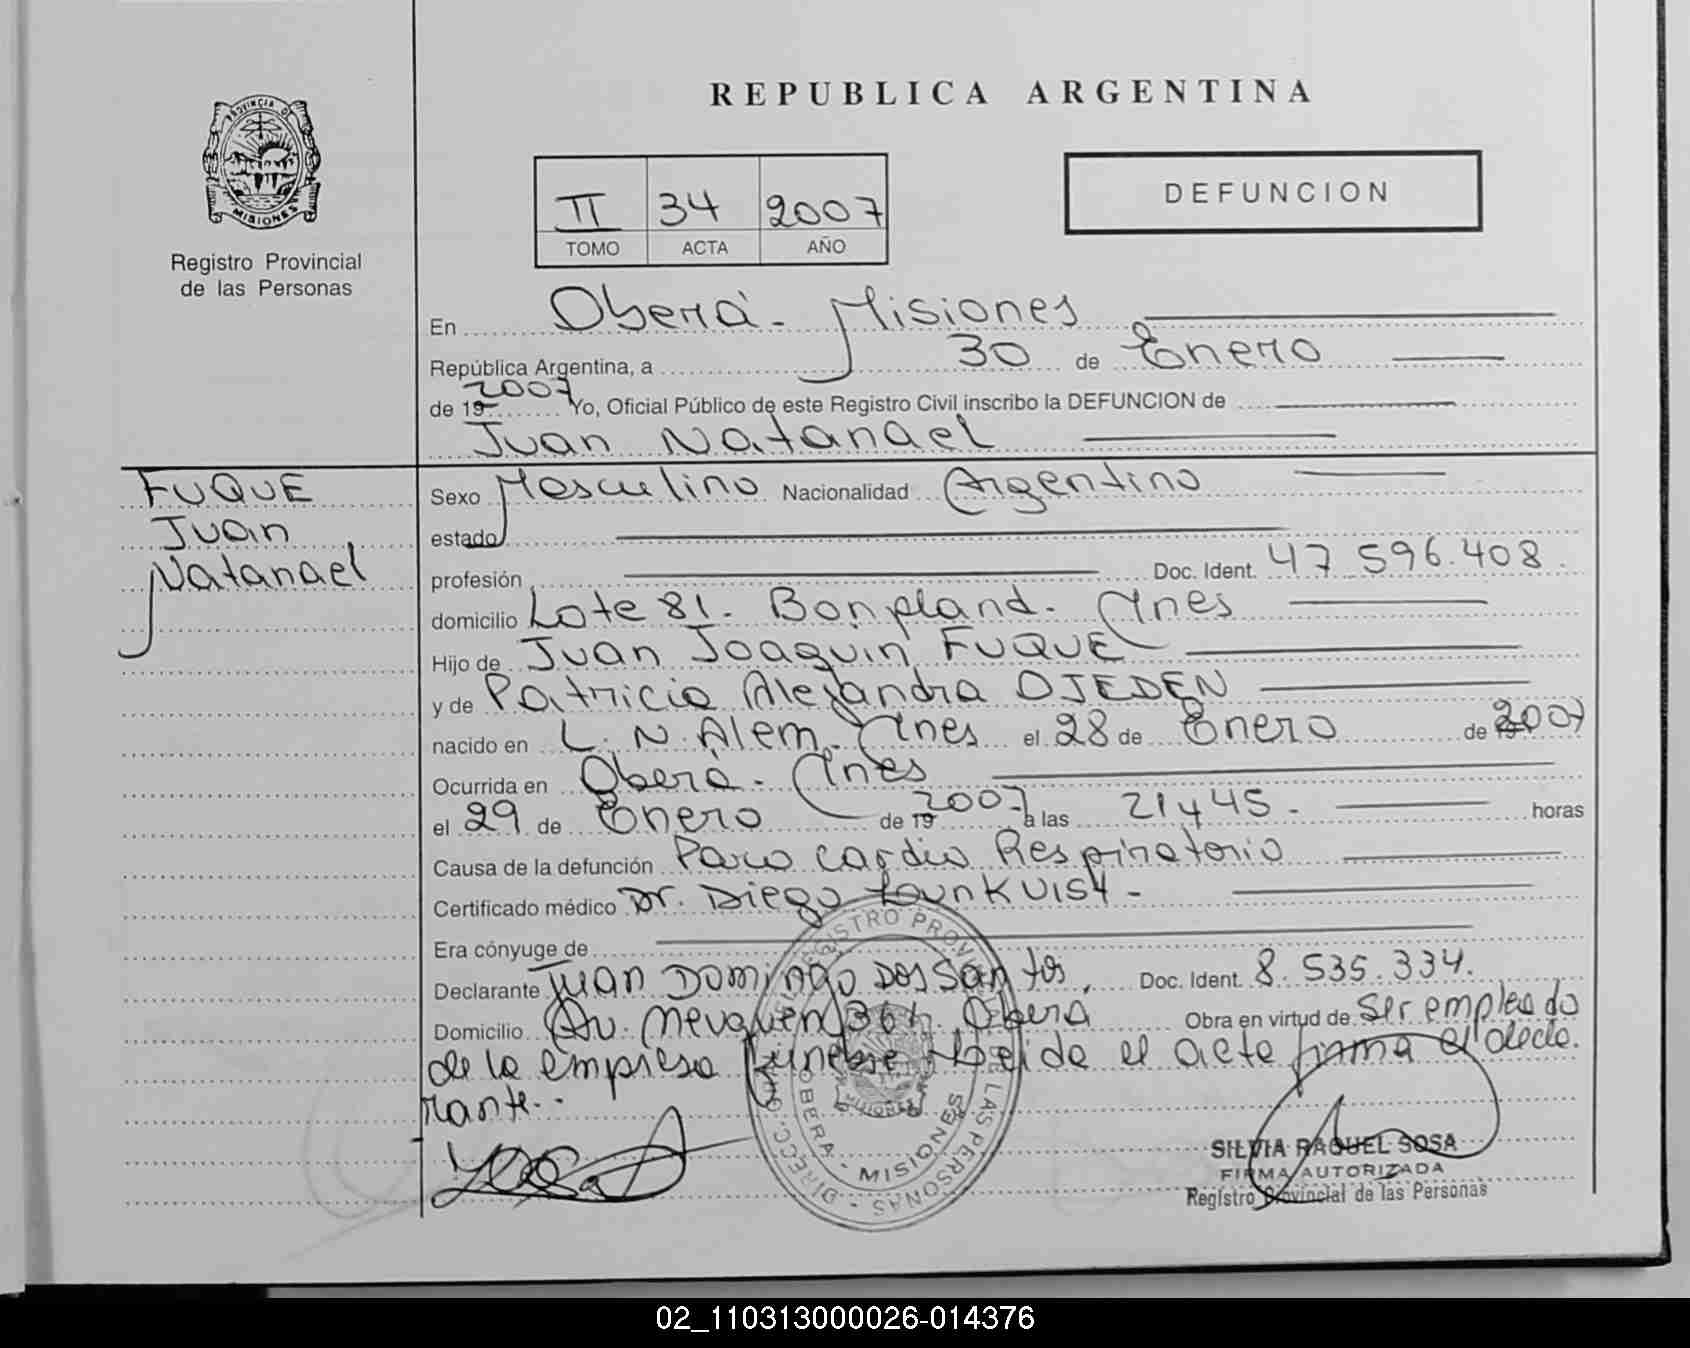 PROVINCIA DE
MISIONES
Registro Provincial
de las Personas
REPUBLICA ARGENTINA
II 34 2007
TOMO ACTA AÑO
DEFUNCION
En Oberá - Misiones
República Argentina, a 30 de Enero
de 19 2007 Yo, Oficial Público de este Registro Civil inscribo la DEFUNCION de
Juan Natanael
FUQUE
Juan
Natanael
Sexo Masculino Nacionalidad Argentino
estado
profesión Doc. Ident. 47.596.408
domicilio Lote 81 - Bonpland - Mnes
Hijo de Juan Joaquin FUQUE
y de Patricia Alejandra OJEDEN
nacido en L. N. Alem - Mnes el 28 de Enero de 2007
Ocurrida en Oberá - Mnes
el 29 de Enero de 19 2007 a las 21 y 45 - horas
Causa de la defunción Paro cardio Respiratorio
Certificado médico Dr. Diego
Era cónyuge de
Declarante Juan Domingo Dos Santos, Doc. Ident. 8.535.334.
Domicilio Av. Neuquen 364 Oberá Obra en virtud de ser empleado
de la empresa funebre Leida el acta firma el decla
rante..
REGISTRO PROVINCIAL DE LAS PERSONAS - DIRECC.
OBERA - MISIONES
MISIONES
SILVIA RAQUEL SOSA
FIRMA AUTORIZADA
Registro Provincial de las Personas
02_110313000026-014376